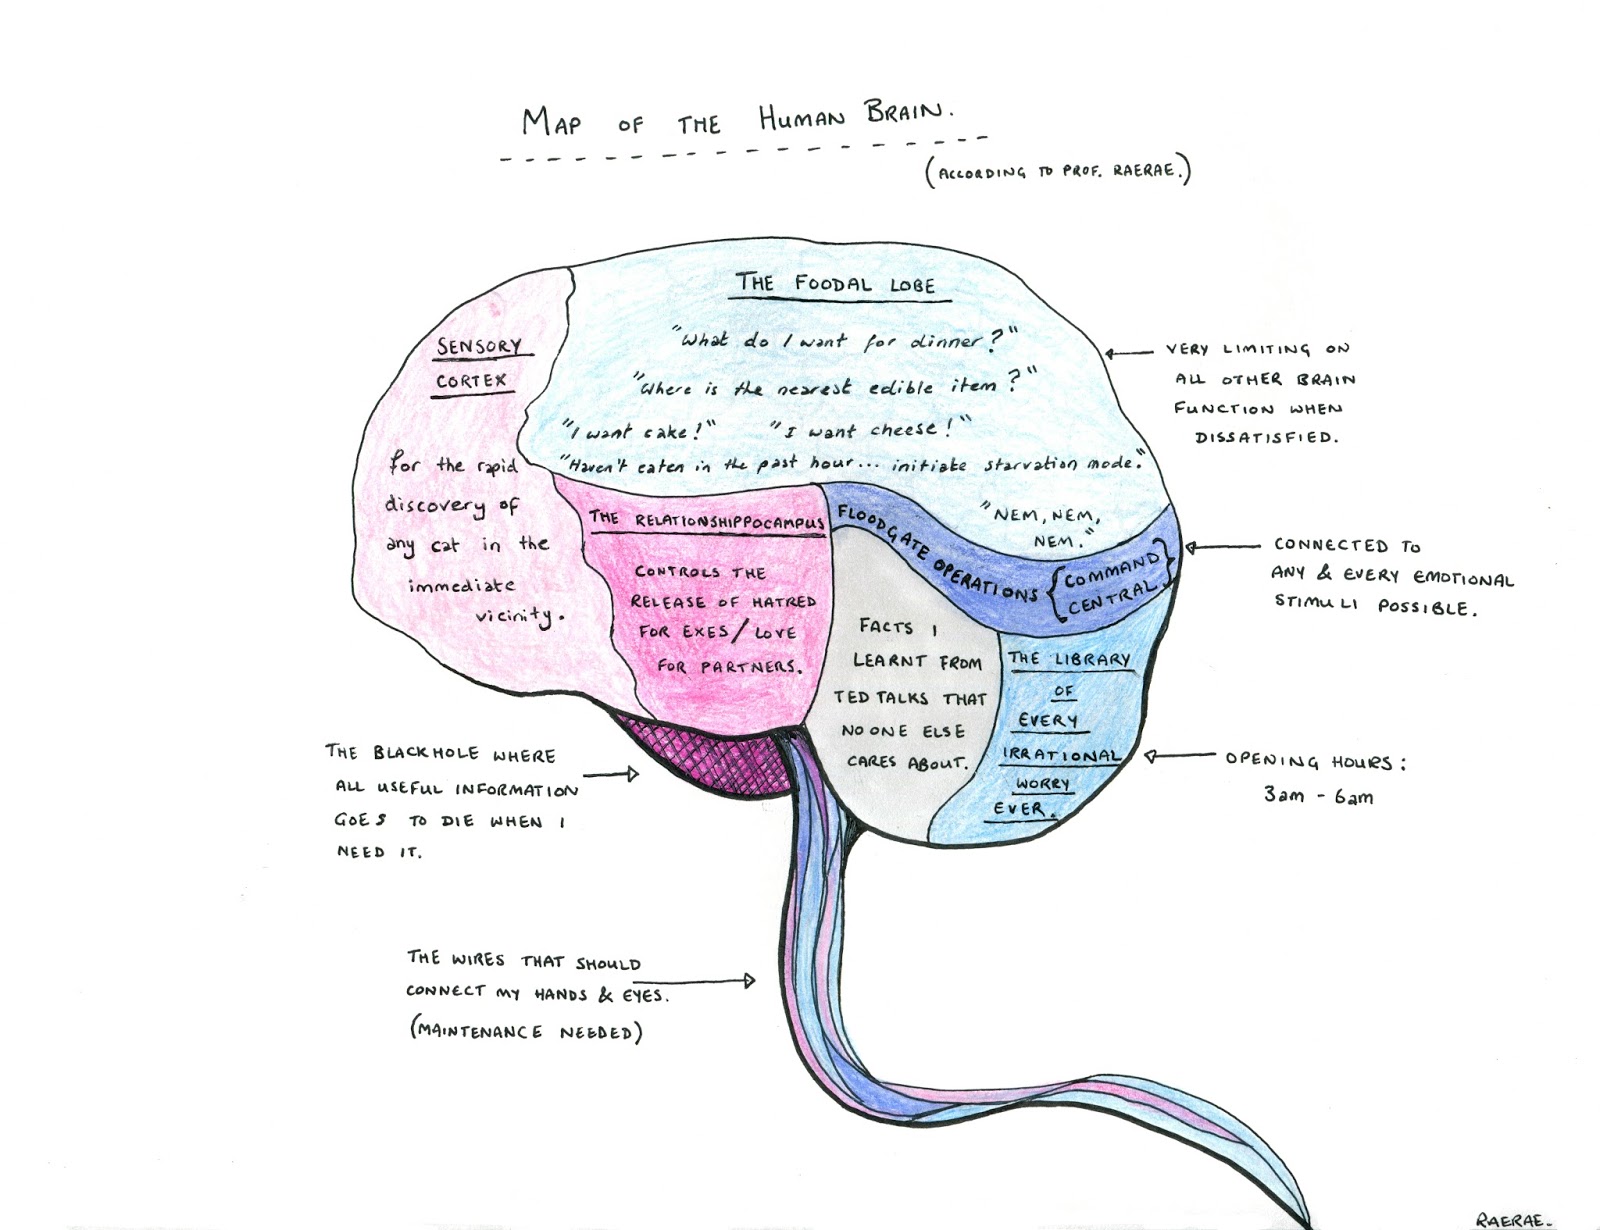 MAP OF THE HUMAN BRAIN.
(ACCORDING TO PROF. RAERAE.)
THE FOODAL LOBE
"What do I want for dinner?"
"Where is the nearest edible item?"
"I want cake!" "I want cheese!"
"Haven't eaten in the past hour... initiate starvation mode."
"NEM, NEM,
NEM."
VERY LIMITING ON
ALL OTHER BRAIN
FUNCTION WHEN
DISSATISFIED.
SENSORY
CORTEX
for the rapid
discovery of
any cat in the
immediate
vicinity.
THE RELATIONSHIPPOCAMPUS
CONTROLS THE
RELEASE OF HATRED
FOR EXES/LOVE
FOR PARTNERS.
FLOODGATE OPERATIONS {COMMAND
CENTRAL}
CONNECTED TO
ANY & EVERY EMOTIONAL
STIMULI POSSIBLE.
FACTS I
LEARNT FROM
TED TALKS THAT
NO ONE ELSE
CARES ABOUT.
THE LIBRARY
OF
EVERY
IRRATIONAL
WORRY
EVER.
OPENING HOURS:
3am - 6am
THE BLACKHOLE WHERE
ALL USEFUL INFORMATION
GOES TO DIE WHEN I
NEED IT.
THE WIRES THAT SHOULD
CONNECT MY HANDS & EYES.
(MAINTENANCE NEEDED)
RAERAE.